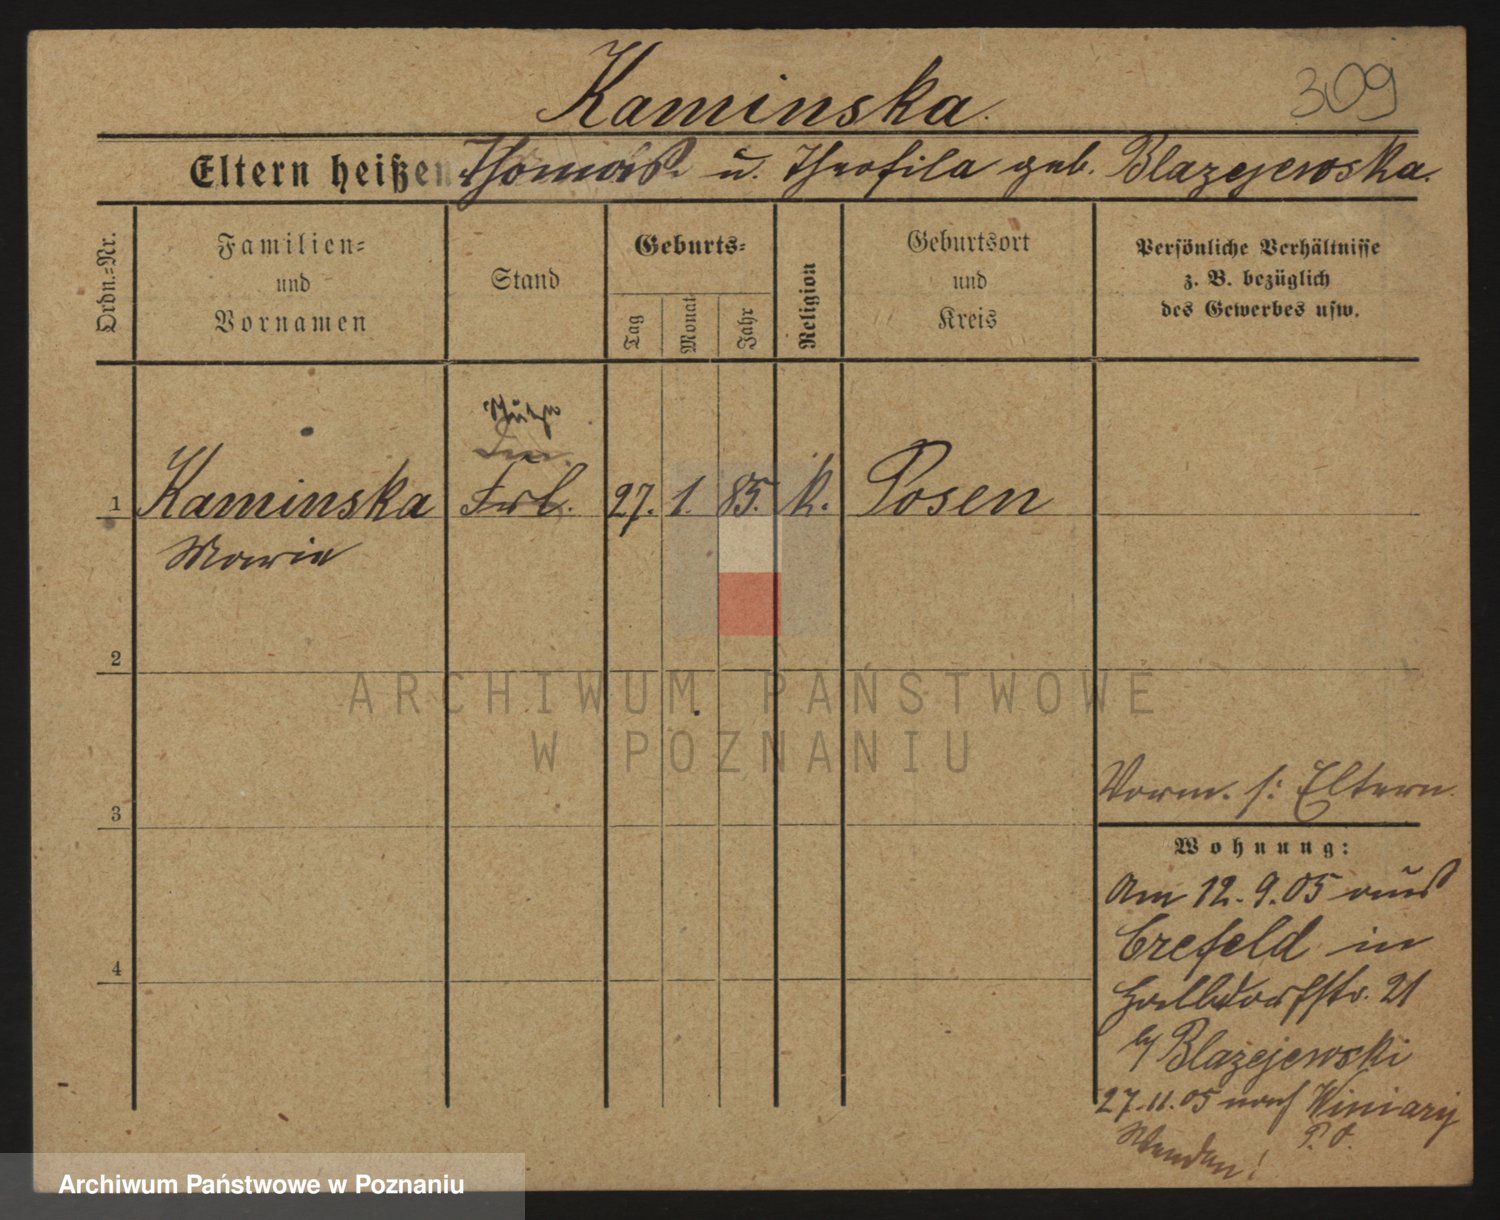 Kaminska.
309
Eltern heißen Thomas u. Theofila geb. Blazejewska.
Ordn.=Nr.
Familien=
und
Vornamen
Stand
Geburts=
Tag
Monat
Jahr
Religion
Geburtsort
und
Kreis
Persönliche Verhältnisse
z. B. bezüglich
des Gewerbes usw.
1 Kaminska Frl. 27. 1. 85. k. Posen
Marie
2
ARCHIWUM PAŃSTWOWE
W POZNANIU
Vorm. s: Eltern.
3
Wohnung:
Am 12.9.05 aus
Crefeld in
Halldorfstr. 21
b/ Blazejewski
4
27.11.05 nach Winiary
P. O.
Wenden!
Archiwum Państwowe w Poznaniu